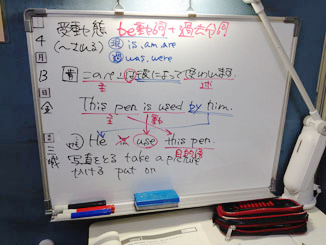 受動態 be動詞+過去分詞
(〜される) 現 is, am, are
過 was, were
4
月
日
金
このペンは彼によって使われます。
主
This pen is used by him.
主
He use this pen.
目的語
写真をとる take a picture
put on